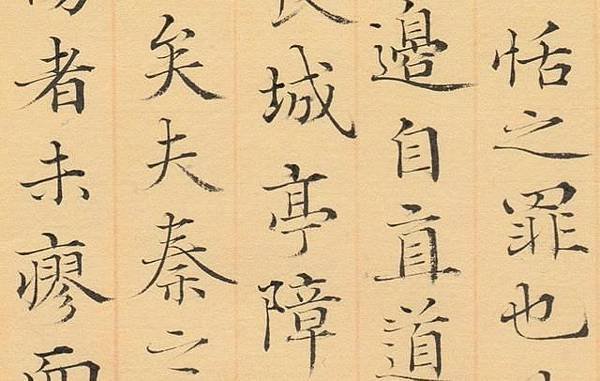 恬之罪也
邊自直道
長城亭障
矣夫秦之
傷者未瘳而